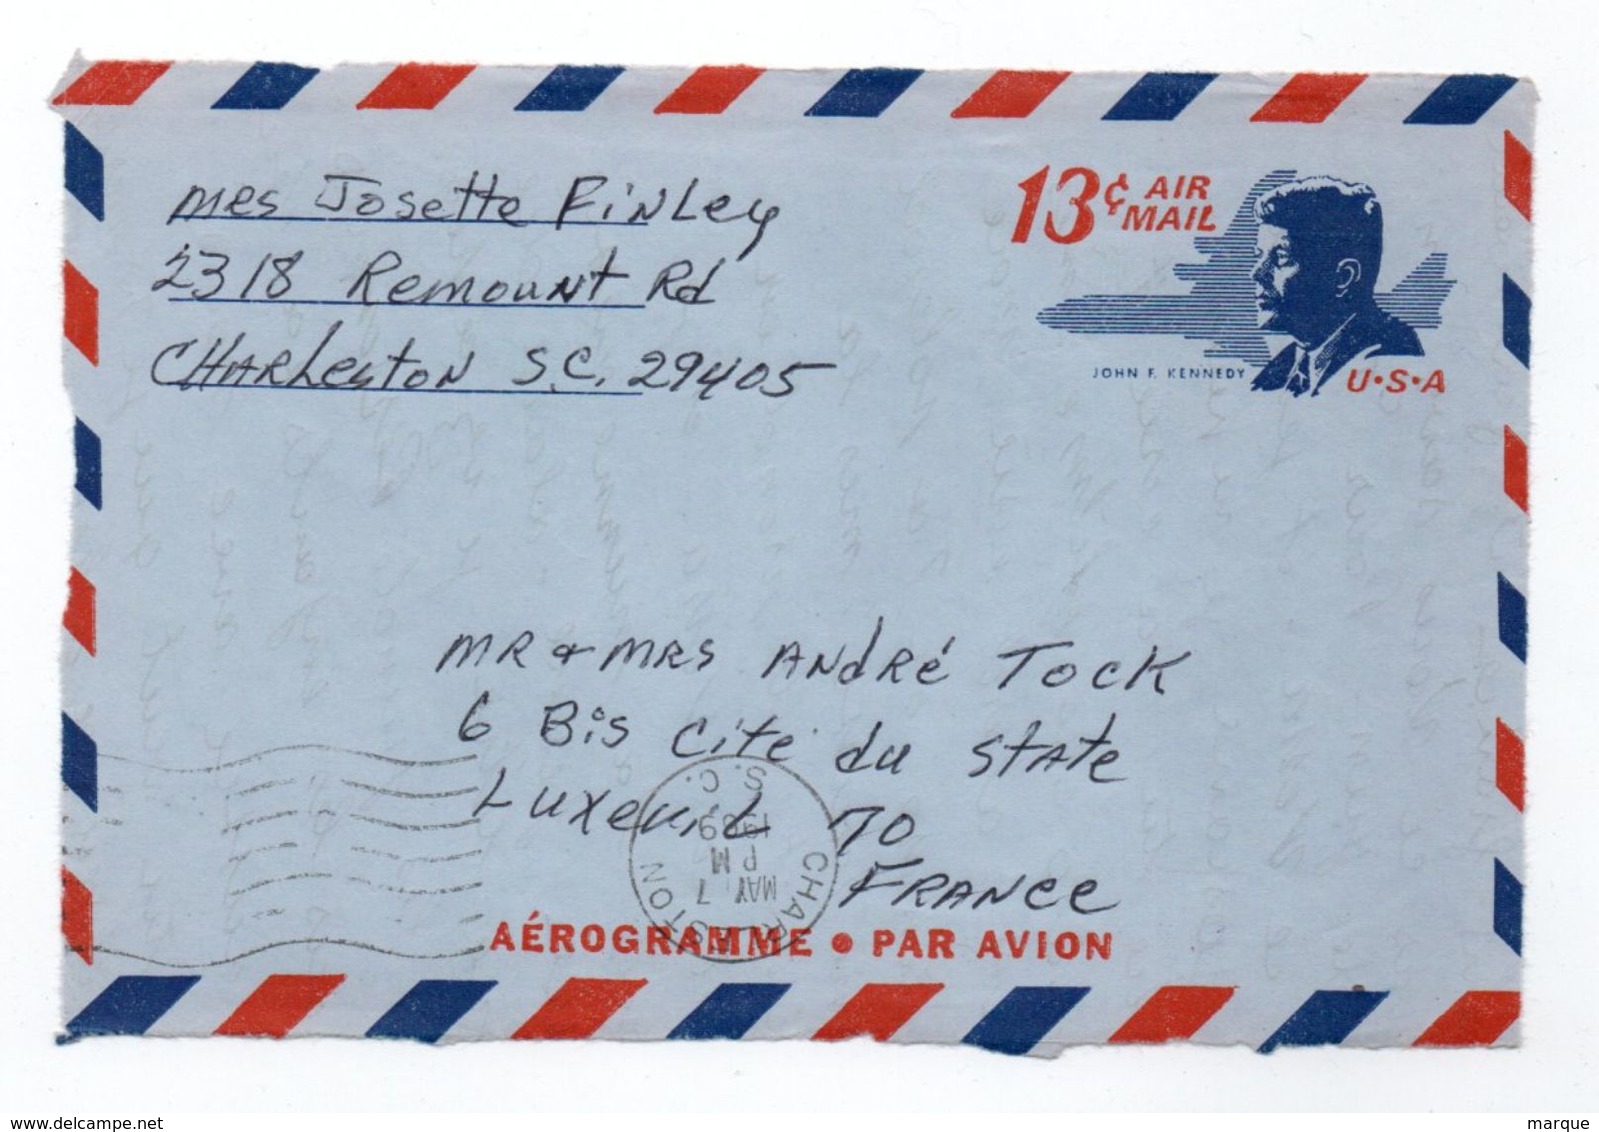 mrs Josette FiNLey
2318 Remount Rd
CHARLeston S.C. 29405
13¢ AIR
MAIL
JOHN F. KENNEDY
U·S·A
MR & MRS ANdRé TOCK
6 Bis Cité du State
LuxeuiL 70
FRANCe
CHARLESTON
S.C.
MAY 7
PM
1969
AÉROGRAMME • PAR AVION
www.delcampe.net
marque